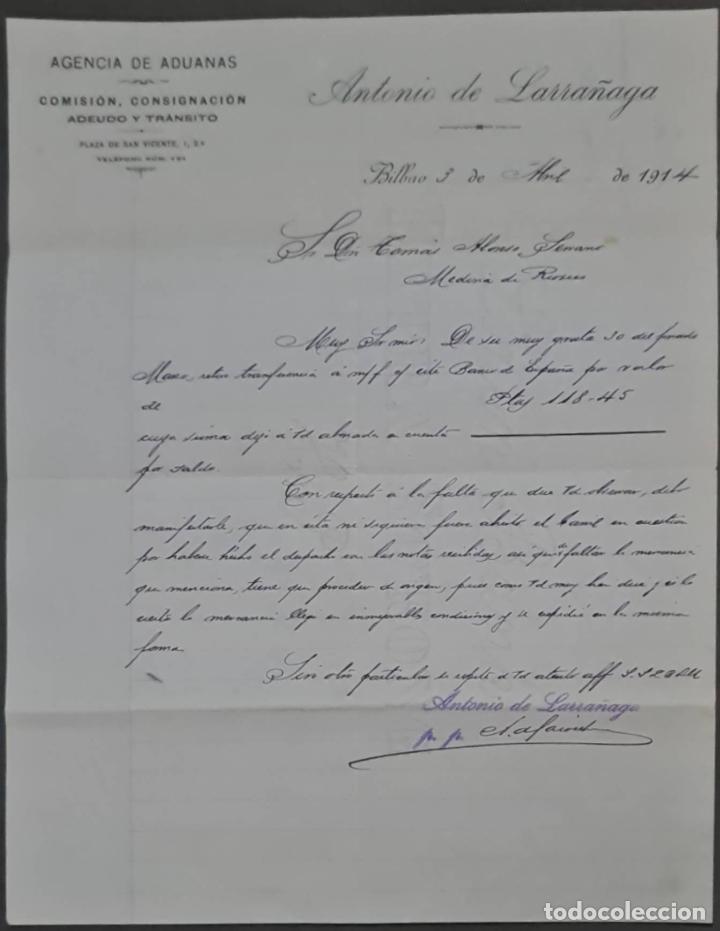 AGENCIA DE ADUANAS
COMISIÓN, CONSIGNACIÓN
ADEUDO Y TRÁNSITO
PLAZA DE SAN VICENTE, 1, 2º
TELÉFONO NÚM.
Antonio de Larrañaga
Bilbao 3 de Abril de 1914
Sr Dn Tomás Alonso Serrano
Medina de Rioseco
Muy Sr mio: De su muy grata 30 del pasado
Marzo, retiro transferencia á m/f s/ este Banco de España por valor
de Ptas 118-45
cuya suma dejo á Vd abonada en cuenta
por saldo.
Con respecto á la falta que dice Vd observar, debo
manifestarle, que en ésta ni siquiera fuera abierto el barril en cuestion
por haber hecho el despacho con las notas recibidas, asi que de faltar la mercancia
que menciona, tiene que proceder de origen, pues como Vd muy bien dice y es lo
cierto la mercancia llegó en inmejorables condiciones y se expidió en la misma
forma
Sin otro particular se repite de Vd atento aff S.S.
Antonio de Larrañaga
p. p.
todocoleccion